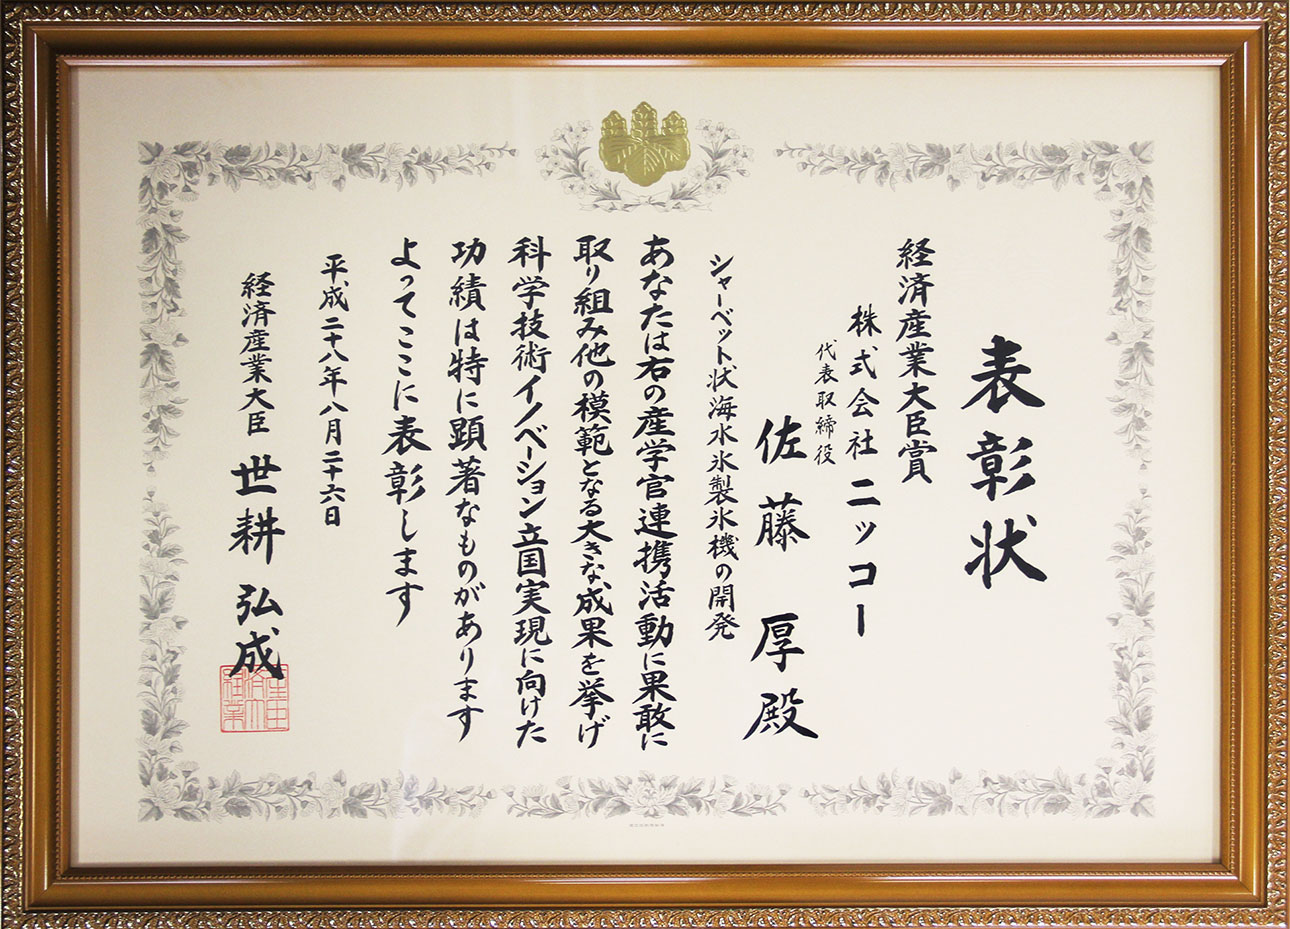 表彰状
経済産業大臣賞
株式会社ニッコー
代表取締役
佐藤 厚 殿
シャーベット状海水氷製氷機の開発
あなたは右の産学官連携活動に果敢に
取り組み他の模範となる大きな成果を挙げ
科学技術イノベーション立国実現に向けた
功績は特に顕著なものがあります
よってここに表彰します
平成二十八年八月二十六日
経済産業大臣 世耕 弘成